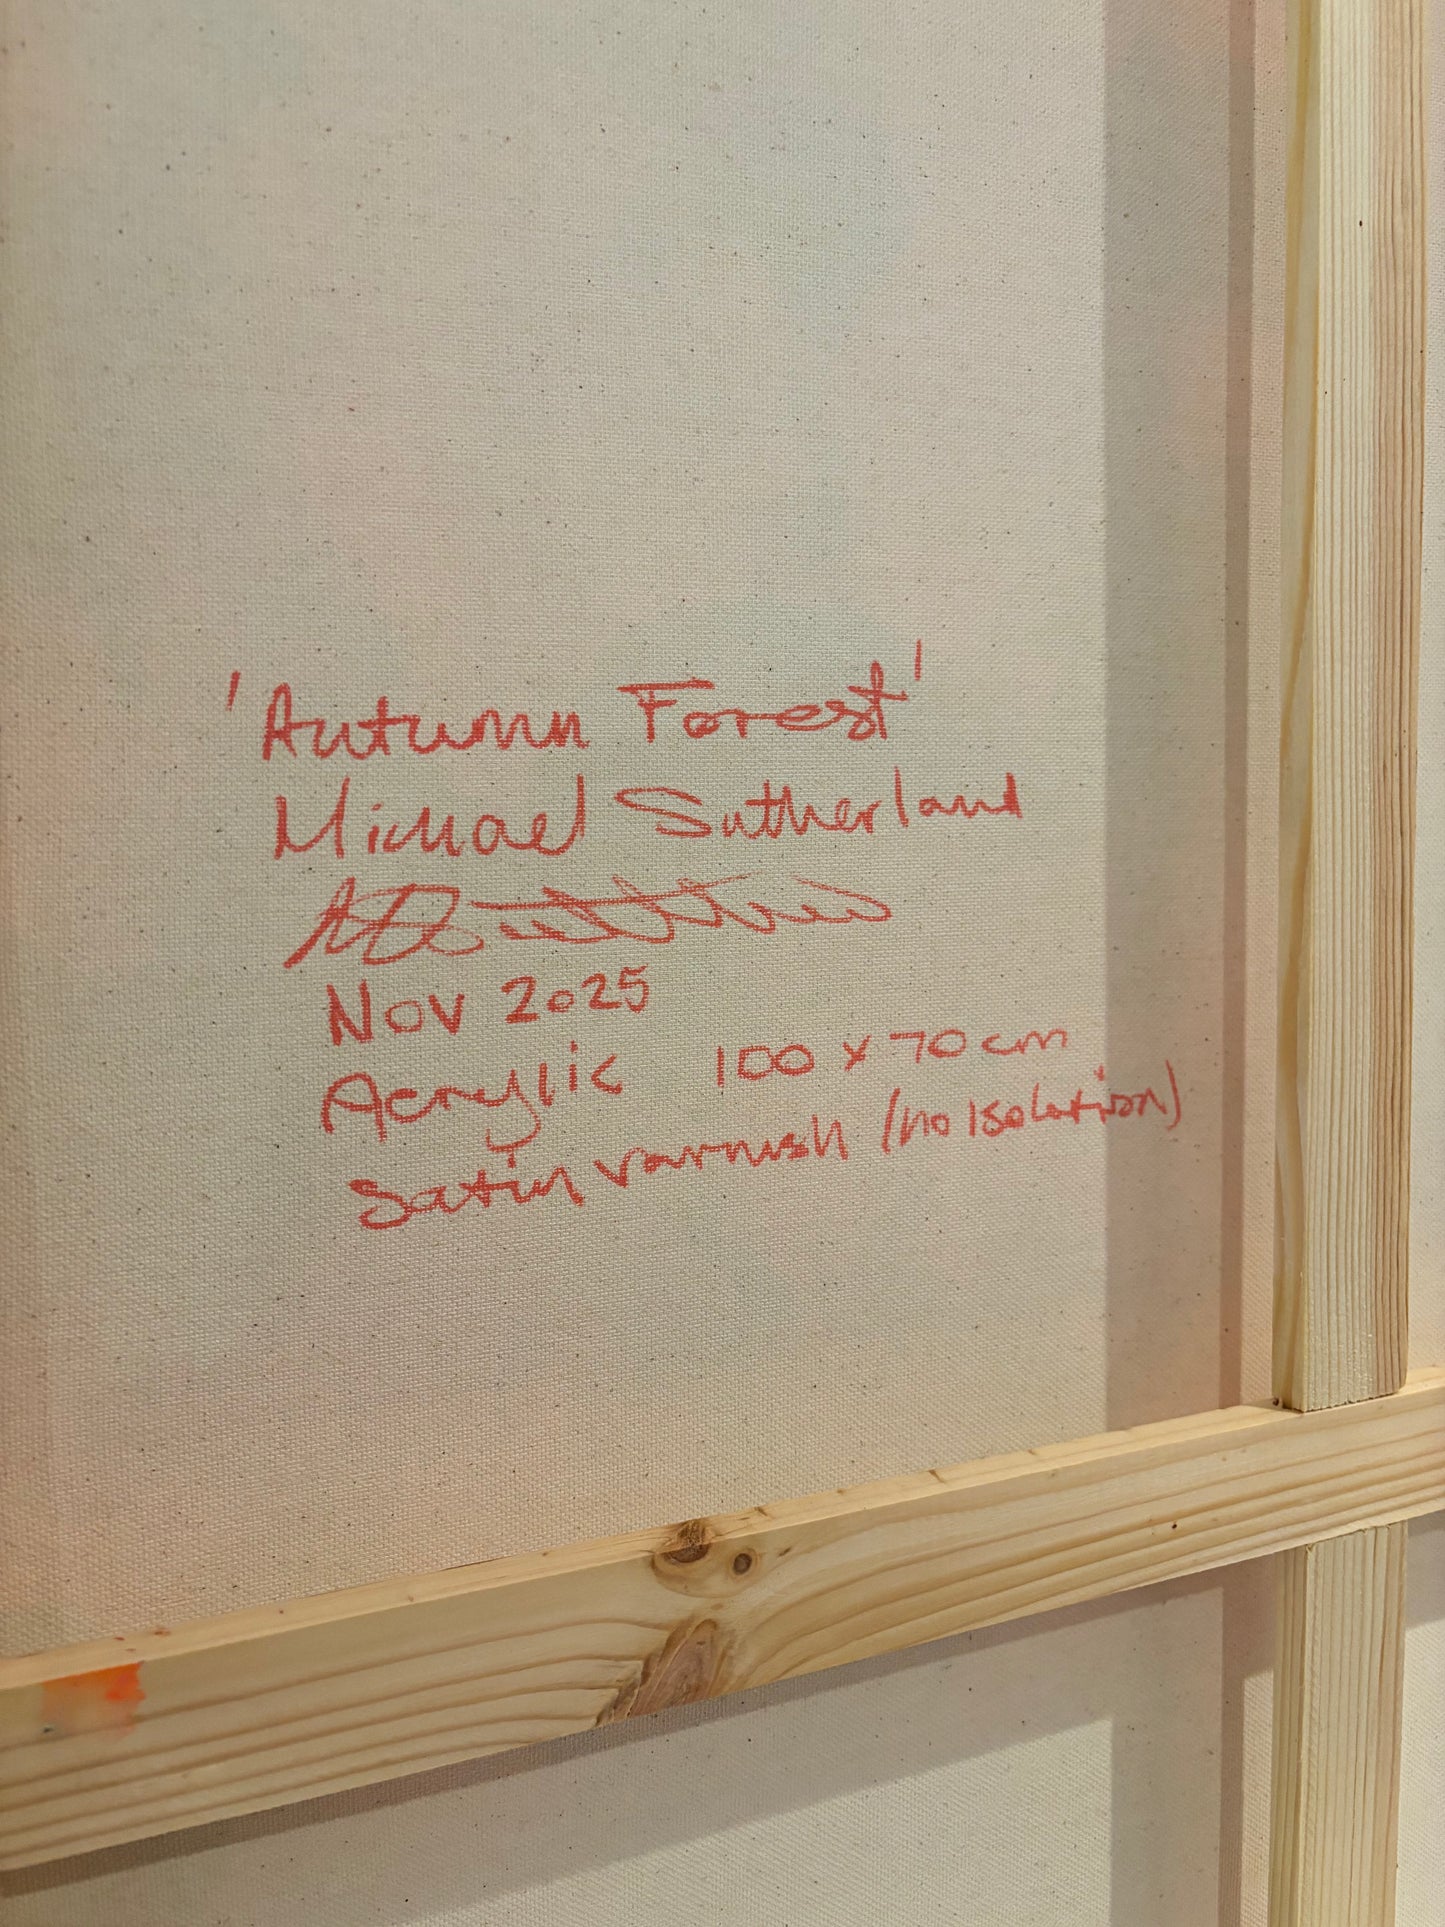 'Autumn Forest'
Michael Sutherland
Nov 2025
Acrylic 100 x 70 cm
Satin varnish (no Isolation)